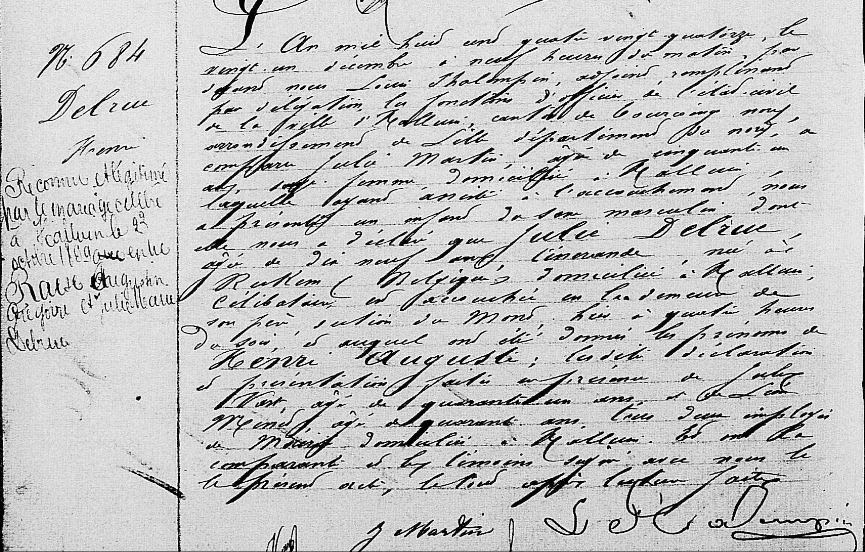 N. 684
Delrue
Henri
Reconnu et légitimé
par le mariage célébré
à Halluin le 23
octobre 1897 entre
Augustin
Grégoire et Julie Marie
Delrue
L'An mil huit cent quatre vingt quatorze, le
vingt un décembre à neuf heures du matin, par
devant nous Louis Thalampin, adjoint remplissant
par délégation les fonctions d'officier de l'état-civil
de la ville d'Halluin, canton de Tourcoing nord,
arrondissement de Lille département du Nord, a
comparu Julie Martin, âgée de cinquante un
ans, sage femme domiciliée à Halluin,
laquelle ayant assisté à l'accouchement, nous
a présenté un enfant du sexe masculin dont
elle nous a déclaré que Julie Delrue,
âgée de dix neuf ans, née à
Rekkem (Belgique) domiciliée à Halluin,
célibataire est accouchée en la demeure de
son père section du Mont, hier à quatre heures
du soir, et auquel ont été donnés les prénoms de
Henri Auguste; lesdites déclaration
et présentation faites en présence de Jules
âgé de quarante un ans, et de Léon
âgé de quarante ans, tous deux employés
de Mairie domiciliés à Halluin. Et ont la
comparante et les témoins signé avec nous le
le présent acte, le tout après lecture faite
J Martin